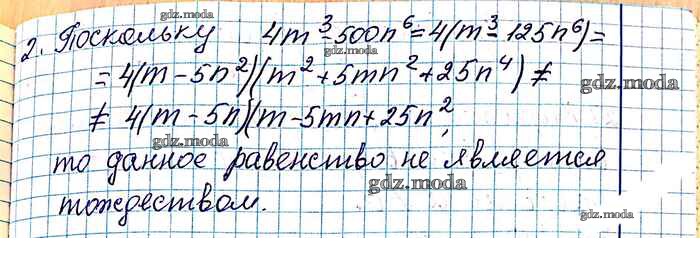 2. Поскольку 4m³-500n⁶=4(m³-125n⁶)=
=4(m-5n²)(m²+5mn²+25n⁴) ≠
≠ 4(m-5n)(m-5mn+25n²,
то данное равенство не является
тождеством.
gdz.moda
gdz.moda
gdz.moda
gdz.moda
gdz.moda
gdz.moda
gdz.moda